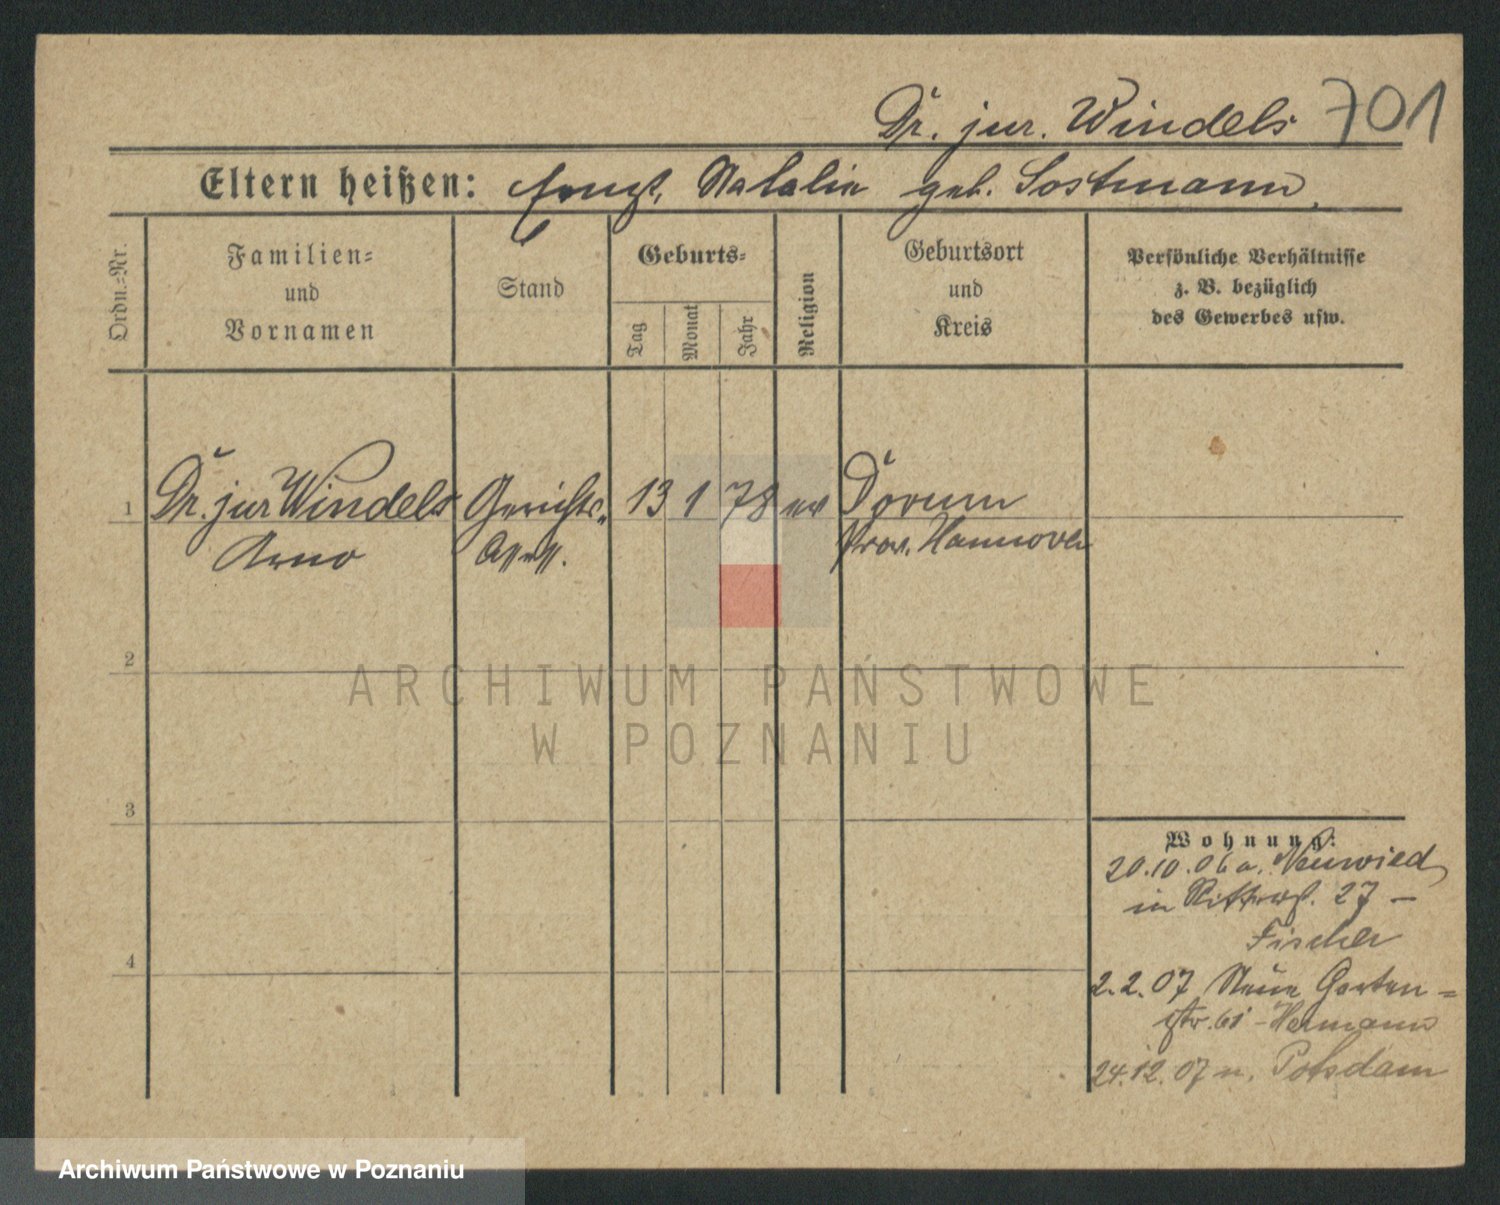 Dr. jur. Windels 701
Eltern heißen: Ernst, Natalie geb. Sostmann.
Ordn.=Nr.
Familien=
und
Vornamen
Stand
Geburts=
Tag
Monat
Jahr
Religion
Geburtsort
und
Kreis
Persönliche Verhältnisse
z. B. bezüglich
des Gewerbes usw.
1 Dr. jur Windels Gerichts= 13 1 78 ev Dorum
Arno Assess. Prov. Hannover
2
ARCHIWUM PAŃSTWOWE
W POZNANIU
3
Wohnung:
20.10.06 a. Neuwied
in Ritterst. 27 –
Fischer
4
2.2.07 Neue Garten=
str. 61 – Hermann
24.12.07 n. Potsdam
Archiwum Państwowe w Poznaniu